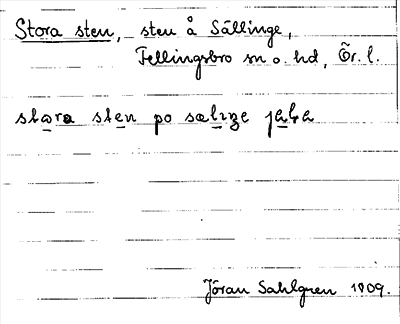 Stora sten, sten å Sällinge,
Fellingsbro sn o. hd, Ör. l.
stora sten po sæliŋe
Jöran Sahlgren 1909.